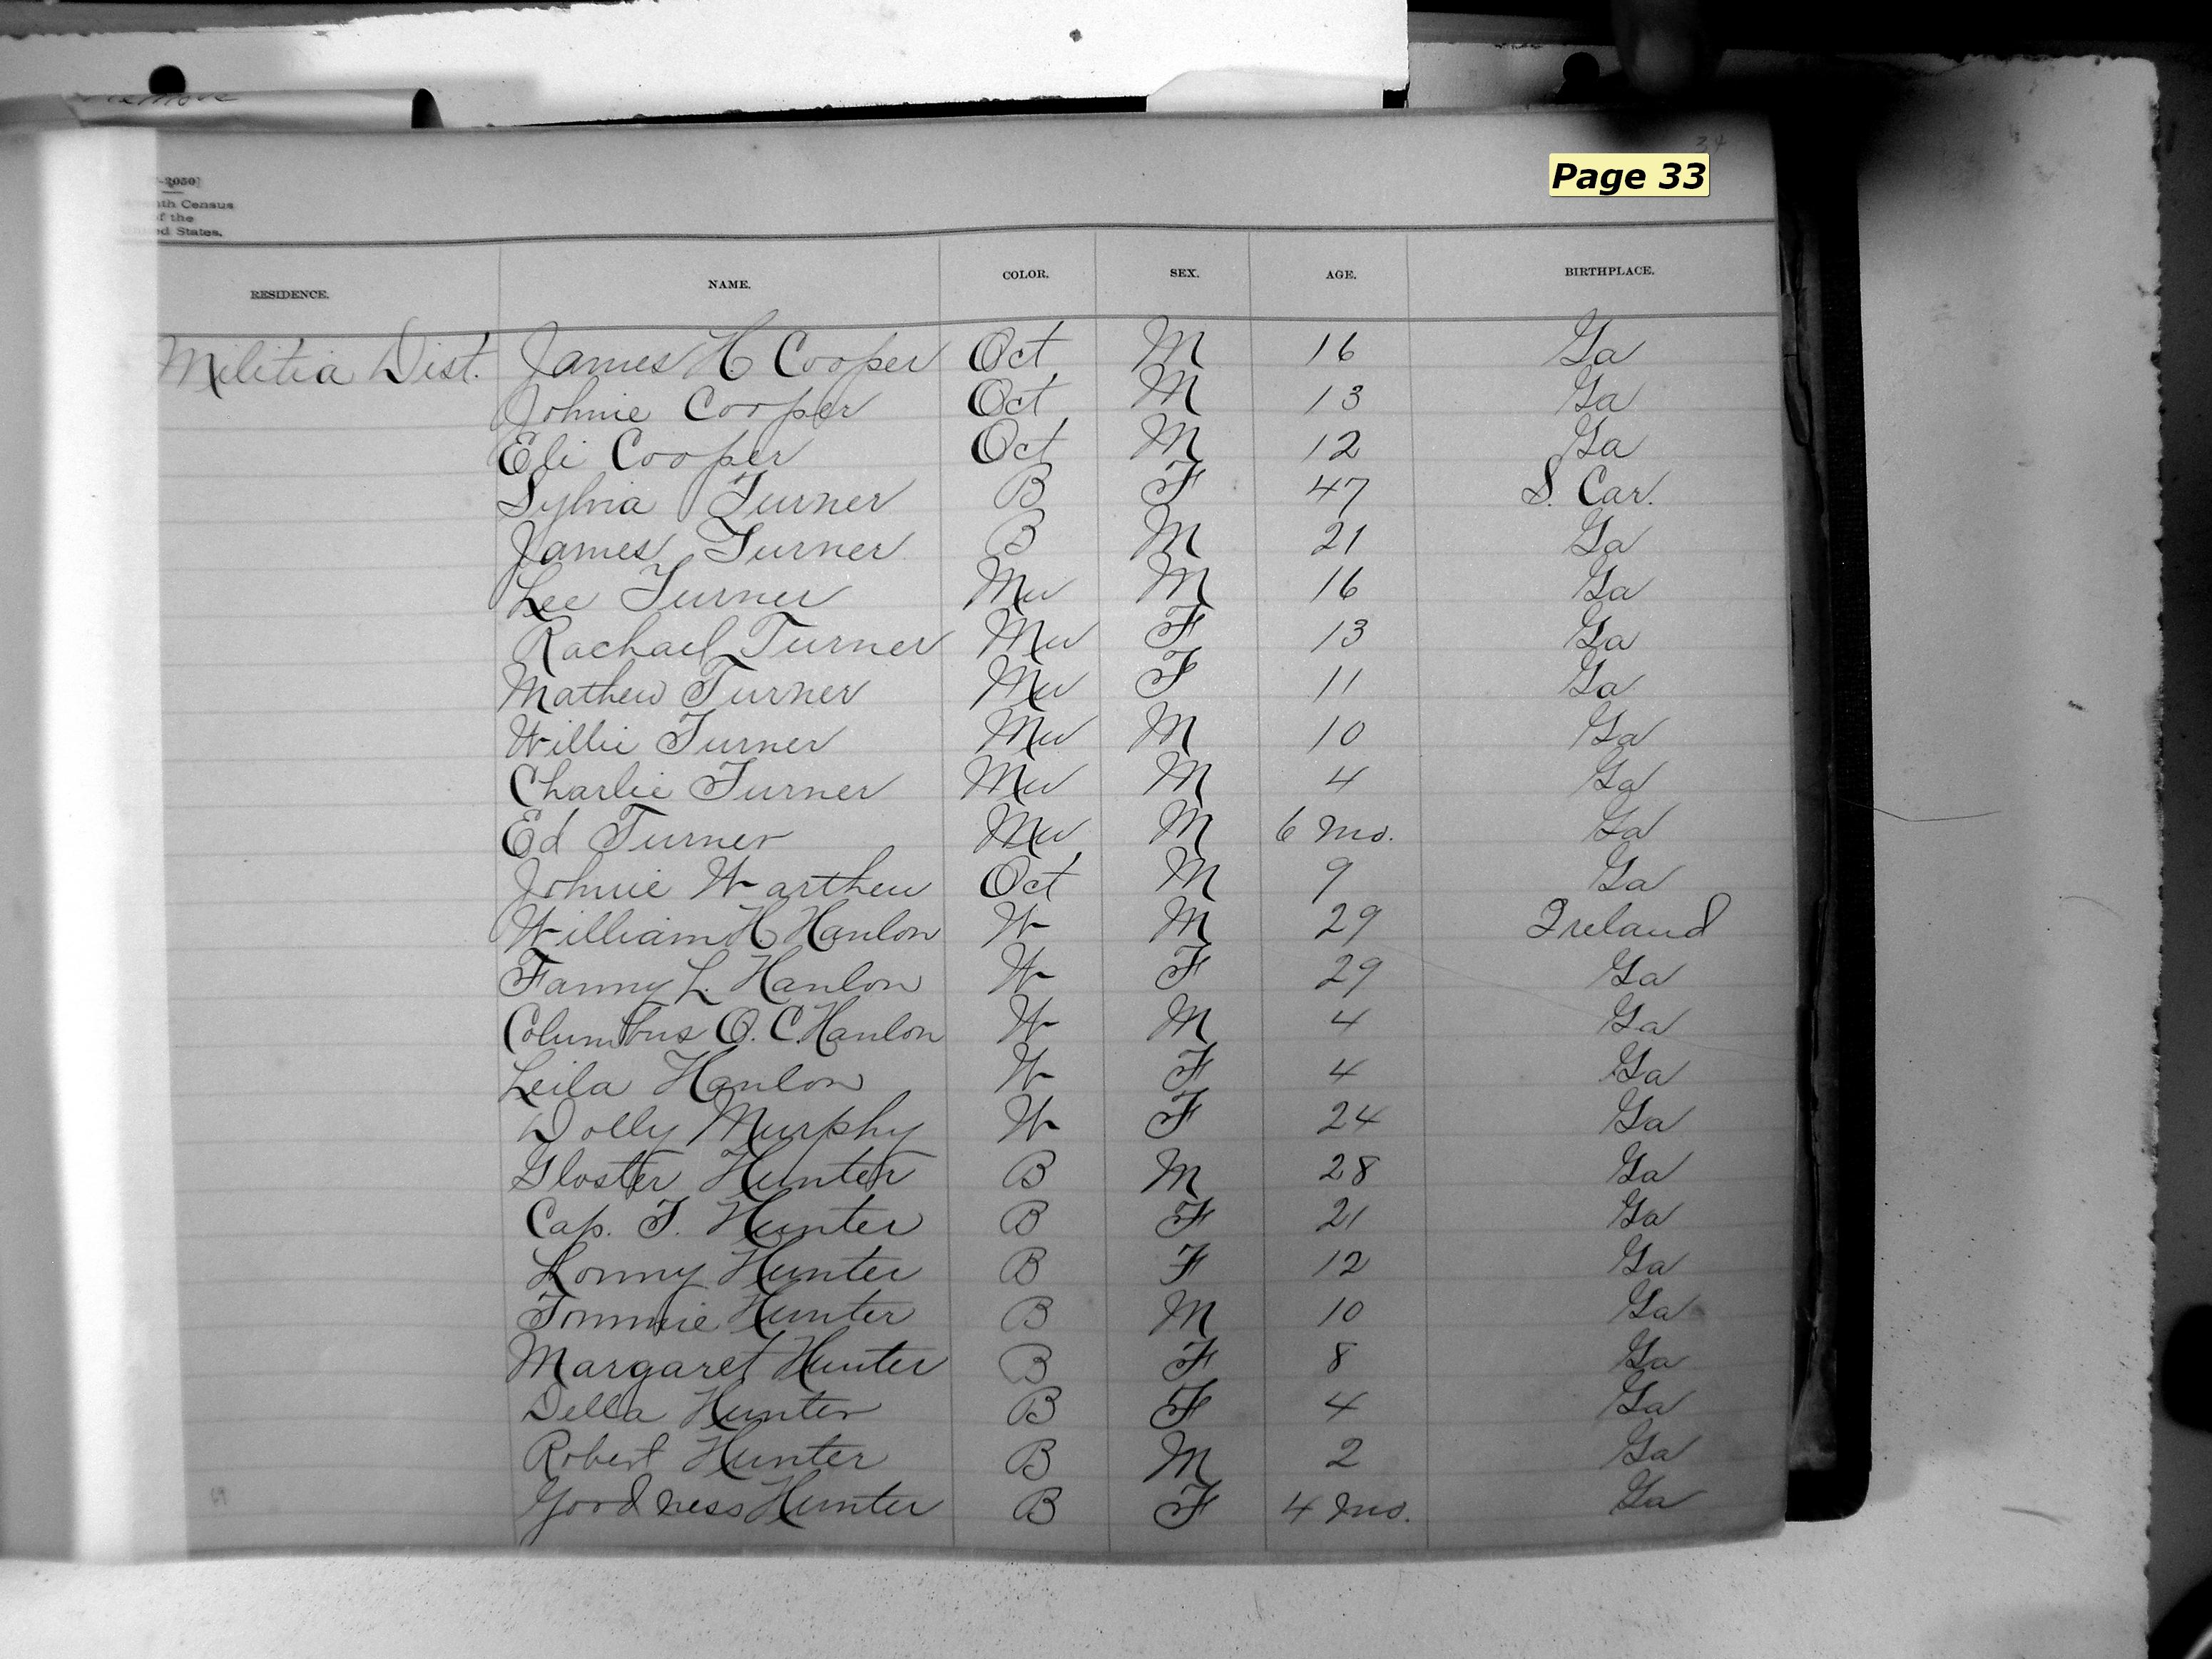 34
Page 33
-2050]
th Census
of the
ed States.
RESIDENCE. NAME. COLOR. SEX. AGE. BIRTHPLACE.
Militia Dist. James H. Cooper Oct M 16 Ga
Johnie Cooper Oct M 13 Ga
Eli Cooper Oct M 12 Ga
Sylvia Turner B F 47 S. Car.
James Turner B M 21 Ga
Lee Turner Mu M 16 Ga
Rachael Turner Mu F 13 Ga
Mathew Turner Mu F 11 Ga
Willie Turner Mu M 10 Ga
Charlie Turner Mu M 4 Ga
Ed Turner Mu M 6 mo. Ga
Johnie Warthen Oct M 9 Ga
William H Hanlon W M 29 Ireland
Fanny L. Hanlon W F 29 Ga
Columbus O. C. Hanlon W M 4 Ga
Leila Hanlon W F 4 Ga
Dolly Murphy W F 24 Ga
Gloster Hunter B M 28 Ga
Cap. T. Hunter B F 21 Ga
Lonny Hunter B F 12 Ga
Tommie Hunter B M 10 Ga
Margaret Hunter B F 8 Ga
Della Hunter B F 4 Ga
Robert Hunter B M 2 Ga
Goodness Hunter B F 4 mo. Ga